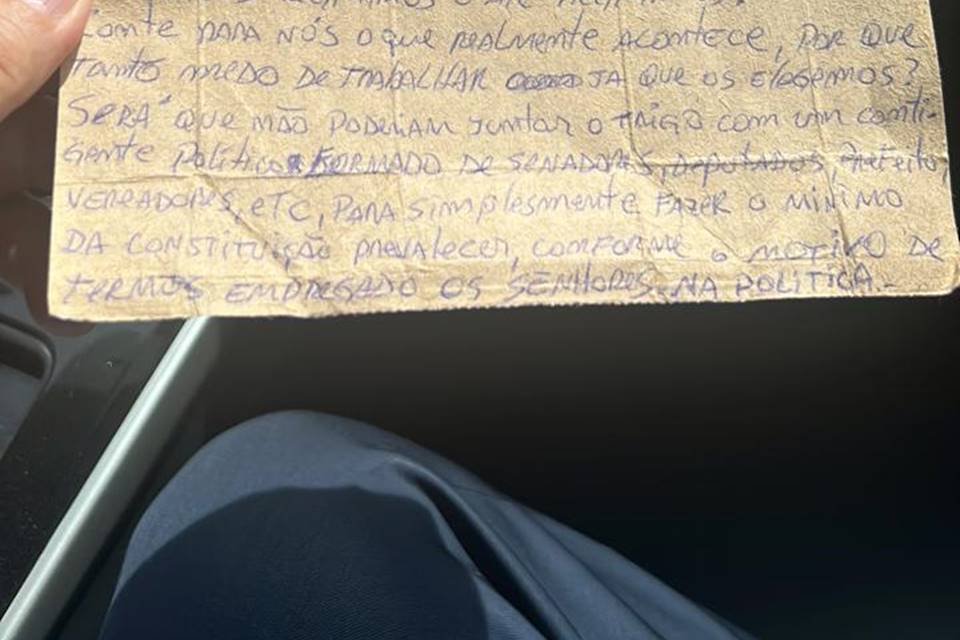 Conte PARA NÓS O que REALMENTE ACONTECE, POR QUE
TANTO MEDO DE TRABALHAR JA QUE OS ELEGEMOS?
SERÁ QUE NÃO PODERIAM JUNTAR O TRIGO COM UM CONTI-
GENTE POLÍTICO FORMADO DE SENADORES, DEPUTADOS, PREFEITO,
VEREADORES, ETC, PARA SIMPLESMENTE FAZER O MÍNIMO
DA CONSTITUIÇÃO PREVALECER, CONFORME O MOTIVO DE
TERMOS EMPREGADO OS SENHORES NA POLÍTICA.-